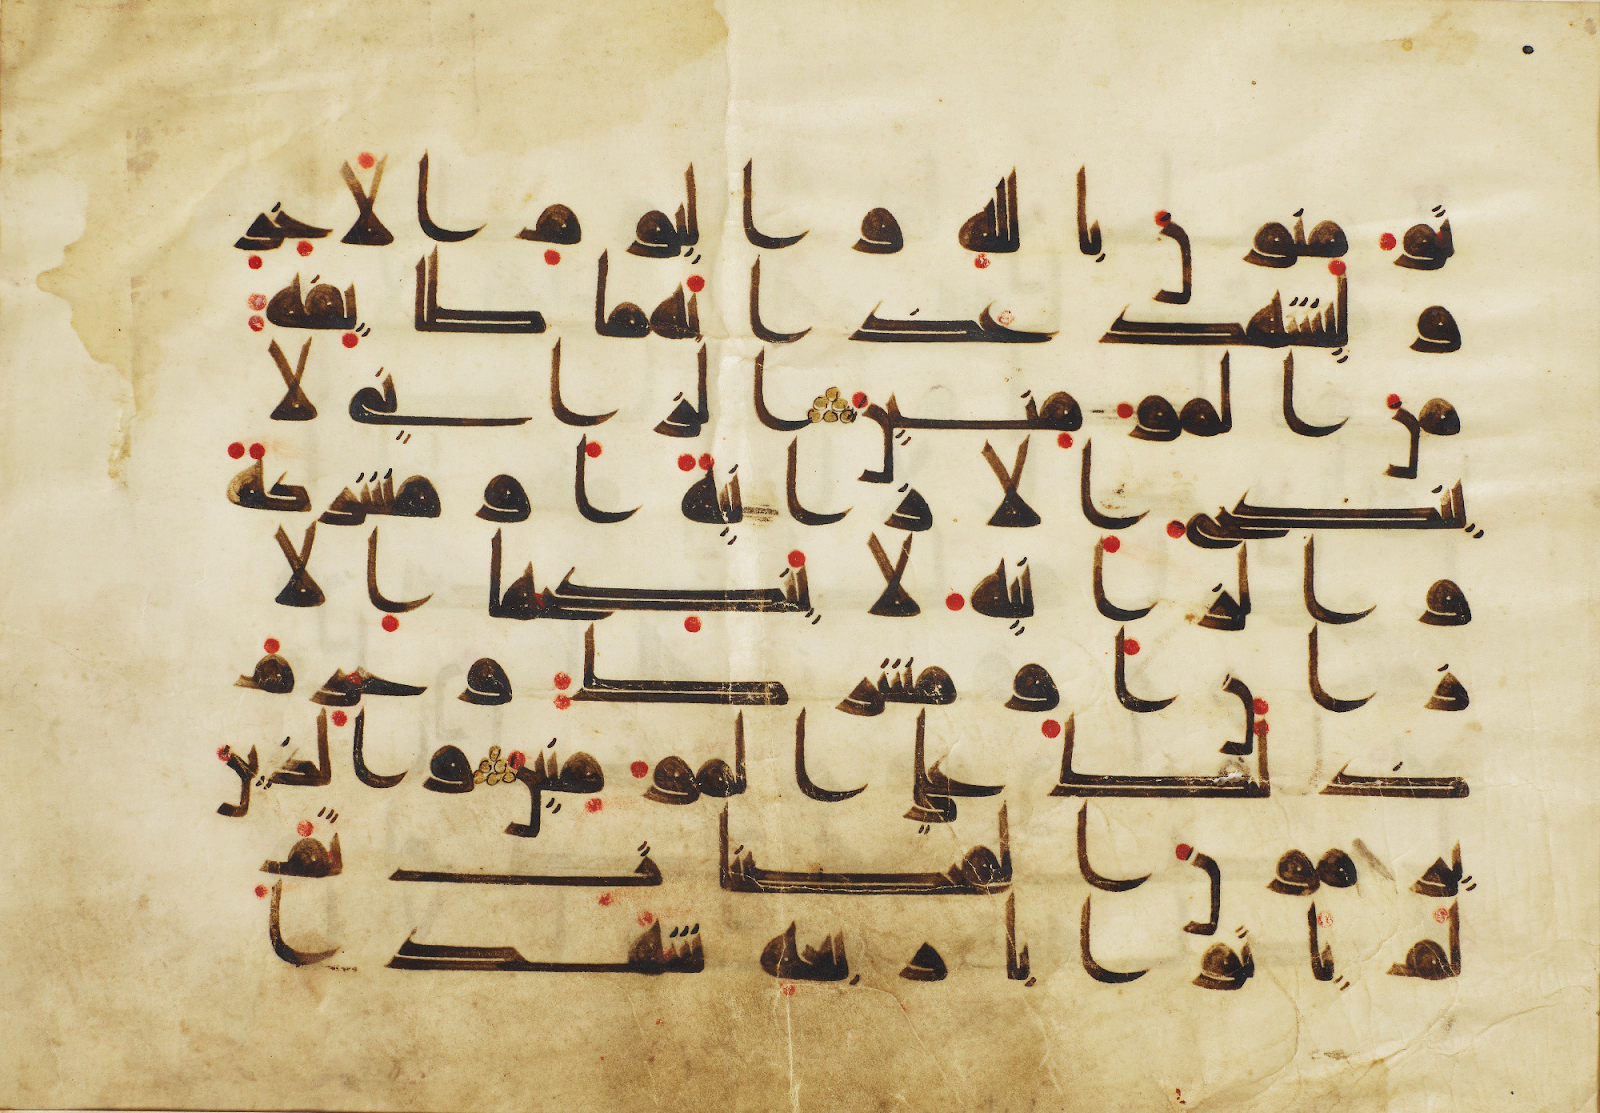 تومنون بالله واليوم الاخر
وليشهد عذابهما طايفة
من المومنين الزاني لا
ينكح الا زانية او مشركة
والزانية لا ينكحها الا
زان او مشرك وحرم
ذلك على المومنين والذين
يرمون المحصنت ثم
لم ياتوا باربعة شهدا